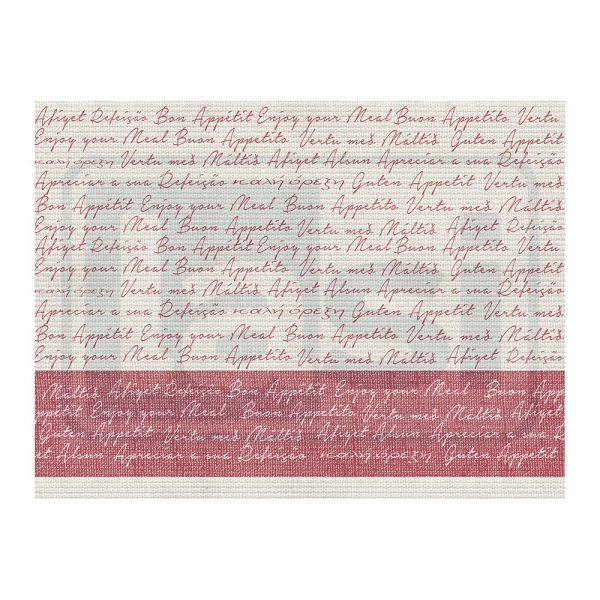 Afiyet Refeição Bon Appétit Enjoy your Meal Buon Appetito Vertu
Enjoy your Meal Buon Appetito Vertu með Máltíð Guten Appetit
καλή όρεξη Vertu með Máltíð Afiyet Alsun Apreciar a sua Refeição
Apreciar a sua Refeição καλή όρεξη Guten Appetit Vertu með
Bon Appétit Enjoy your Meal Buon Appetito Vertu með Máltíð
Enjoy your Meal Buon Appetito Vertu með Máltíð Afiyet Refeição
Afiyet Refeição Bon Appétit Enjoy your Meal Buon Appetito Vertu
Enjoy your Meal Buon Appetito Vertu með Máltíð Guten Appetit
καλή όρεξη Vertu með Máltíð Afiyet Alsun Apreciar a sua
Apreciar a sua Refeição καλή όρεξη Guten Appetit Vertu með
Bon Appétit Enjoy your Meal Buon Appetito Vertu með Máltíð
Enjoy your Meal Buon Appetito Vertu með Máltíð Afiyet Refeição
Máltíð Afiyet Refeição Bon Appétit Enjoy your Meal Buon
ppétit Enjoy your Meal Buon Appetito Vertu með Máltíð
Guten Appetit Vertu með Máltíð Afiyet Alsun Apreciar a sua
et Alsun Apreciar a sua Refeição καλή όρεξη Guten Appetit